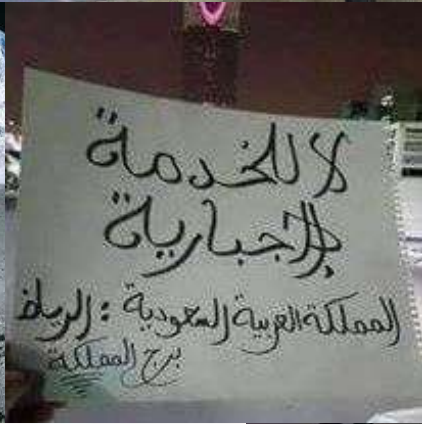 لا للخدمة
الإجبارية
المملكة العربية السعودية : الرياض
برج المملكة